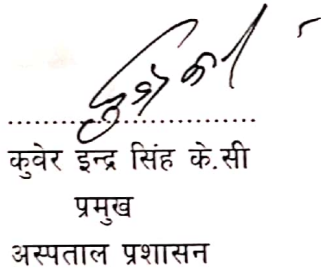 कुवेर इन्द्र सिंह के.सी
प्रमुख
अस्पताल प्रशासन